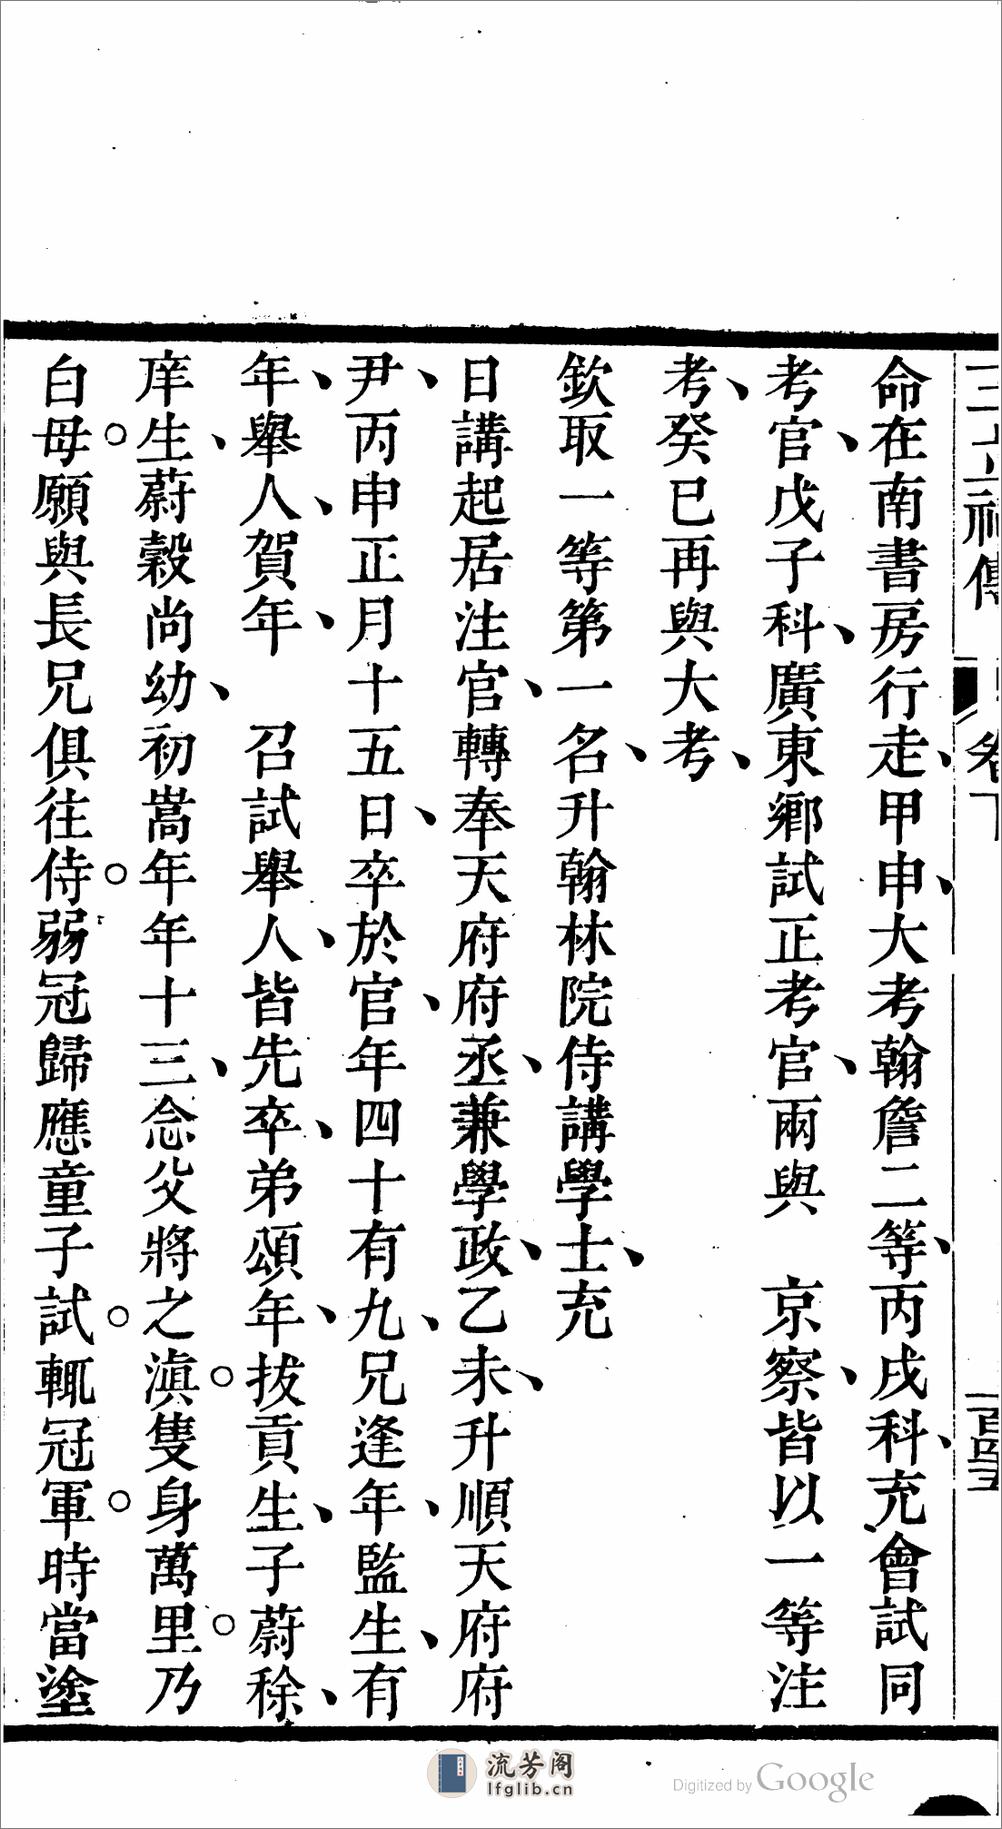 命在南書房行走、甲申、大考翰詹二等、丙戌科、充會試同
考官、戊子科、廣東鄉試正考官、兩與　京察、皆以一等注
考、癸巳再與大考、
欽取一等第一名、升翰林院侍講學士、充
日講起居注官、轉奉天府府丞、兼學政、乙未、升順天府府
尹、丙申正月十五日、卒於官、年四十有九、兄逢年、監生、有
年、舉人、賀年、　召試舉人、皆先卒、弟頌年、拔貢生、子蔚稌、
庠生、蔚穀尚幼、初嵩年年十三、念父將之滇。隻身萬里。乃
白母。願與長兄俱往侍。弱冠歸應童子試。輒冠軍。時當塗
流芳阁
lfglib.cn
Digitized by Google